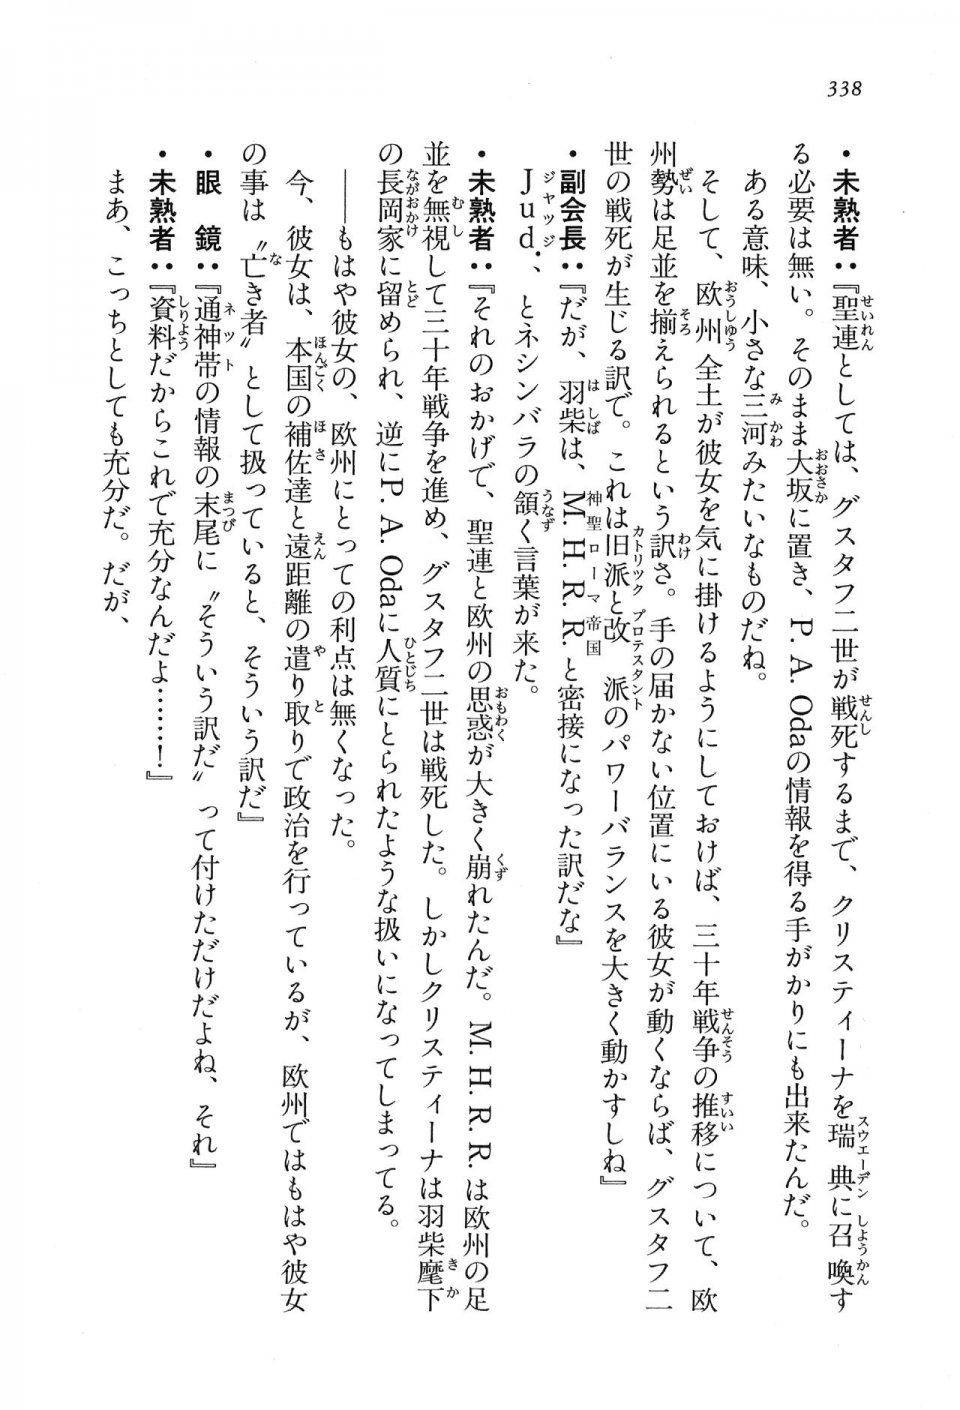 338
・未熟者：『聖連としては、グスタフ二世が戦死するまで、クリスティーナを瑞典に召喚す
る必要は無い。そのまま大坂に置き、P. A. Odaの情報を得る手がかりにも出来たんだ。
ある意味、小さな三河みたいなものだね。
そして、欧州全土が彼女を気に掛けるようにしておけば、三十年戦争の推移について、欧
州勢は足並を揃えられるという訳さ。手の届かない位置にいる彼女が動くならば、グスタフ二
世の戦死が生じる訳で。これは旧派と改派のパワーバランスを大きく動かすしね』
・副会長：『だが、羽柴は、M. H. R. R.と密接になった訳だな』
Jud.、とネシンバラの頷く言葉が来た。
・未熟者：『それのおかげで、聖連と欧州の思惑が大きく崩れたんだ。M. H. R. R.は欧州の足
並を無視して三十年戦争を進め、グスタフ二世は戦死した。しかしクリスティーナは羽柴麾下
の長岡家に留められ、逆にP. A. Odaに人質にとられたような扱いになってしまってる。
――もはや彼女の、欧州にとっての利点は無くなった。
今、彼女は、本国の補佐達と遠距離の遣り取りで政治を行っているが、欧州ではもはや彼女
の事は〝亡き者〟として扱っていると、そういう訳だ』
・眼　鏡：『通神帯の情報の末尾に〝そういう訳だ〟って付けただけだよね、それ』
・未熟者：『資料だからこれで充分なんだよ……！』
まあ、こっちとしても充分だ。だが、